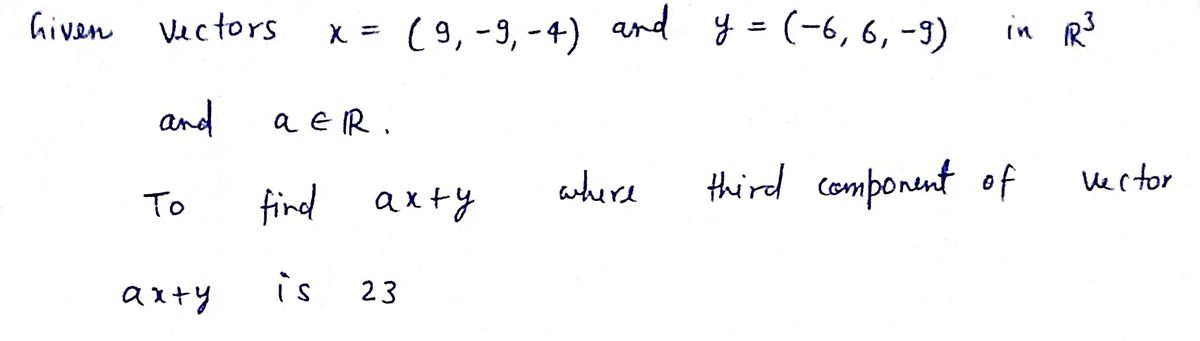 Given vectors x = (9, -9, -4) and y = (-6, 6, -9) in ℝ³
and a ∈ ℝ.
To find ax+y where third component of vector
ax+y is 23